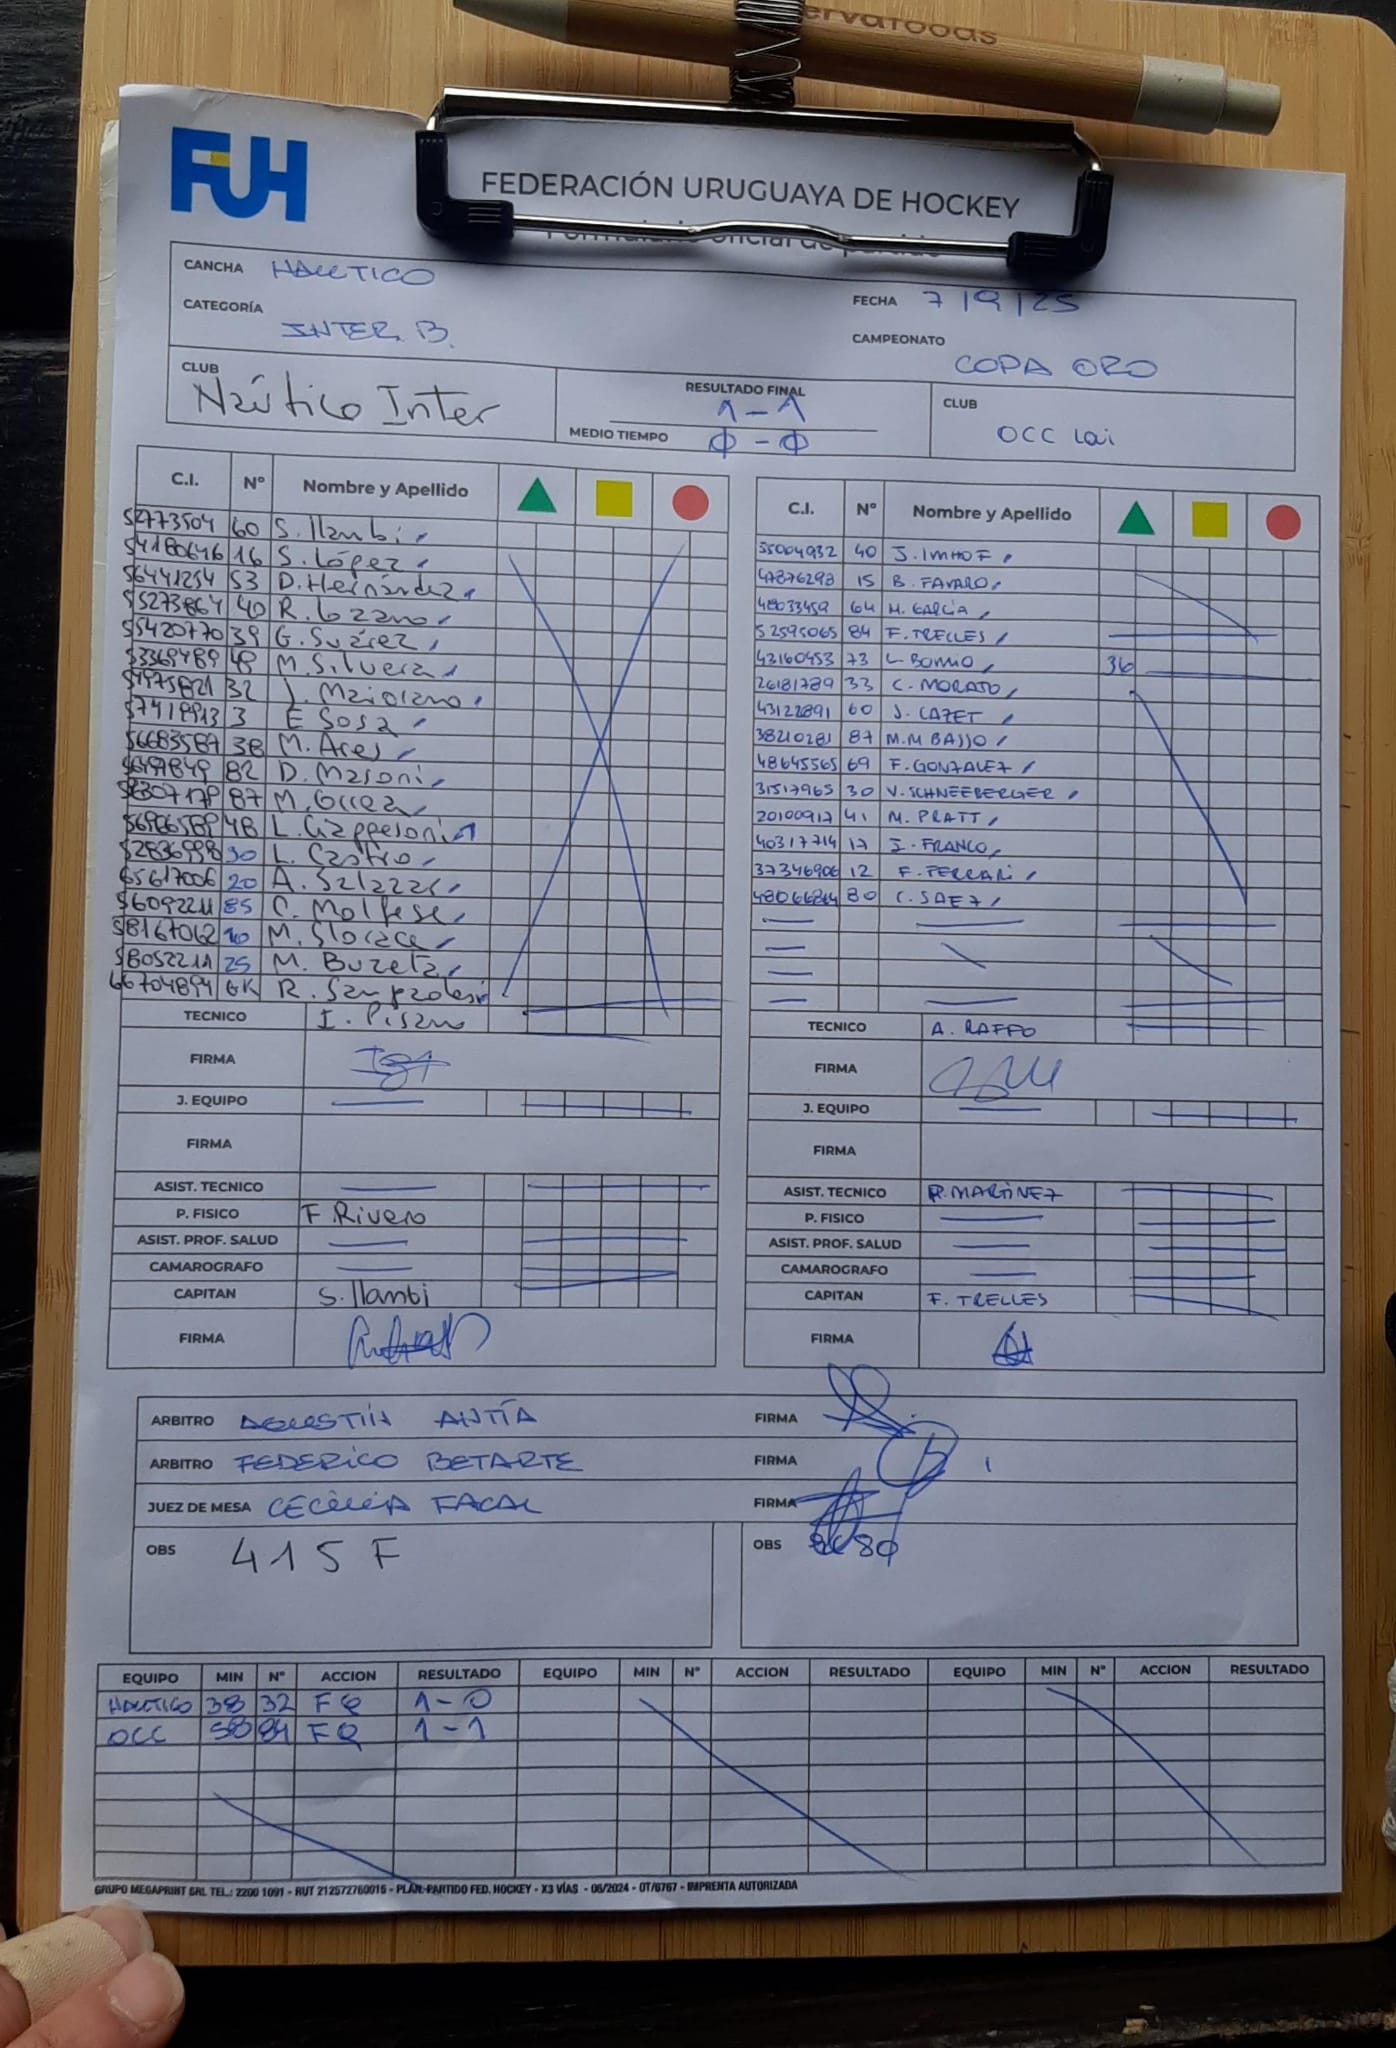 ervafoods
FUH
FEDERACIÓN URUGUAYA DE HOCKEY
CANCHA NAUTICO
FECHA 7/9/25
CATEGORÍA INTER. B.
CAMPEONATO COPA ORO
CLUB Náutico Inter
RESULTADO FINAL 1-1
MEDIO TIEMPO 0-0
CLUB OCC Lai
C.I. N° Nombre y Apellido
60 S. Llambi
54180646 16 S. López
56441254 53 D. Hernández
40 R. Lozano
55420770 39 G. Suárez
53369489 48 M. Silvera
32 J. Maiorano
3 E Sosa
56683587 38 M. Ares
82 D. Masoni
87 M.
48 L.
L. Castro
55617006 20 A. Salazar
85 C. Molfese
58167062 M. Storace
25 M. Buzeta
66704894 GK R.
TECNICO I. Pisano
FIRMA
J. EQUIPO
FIRMA
ASIST. TECNICO
P. FISICO F. Rivero
ASIST. PROF. SALUD
CAMAROGRAFO
CAPITAN S. Llambi
FIRMA
C.I. N° Nombre y Apellido
55004932 40 J. IMHOF
47876293 15 B. FAVARO
48033459 64 M. GARCÍA
52595065 84 F. TRELLES
43160453 73 L. 36
26181789 33 C. MORATO
43122891 60 J. CAZET
38210281 87 M.M BASSO
48645565 69 F. GONZALEZ
31517965 30 V. SCHNEEBERGER
20100917 41 M. PRATT
40317714 17 I. FRANCO
37346906 12 F. FERRARI
80 C. SAEZ
TECNICO A. RAFFO
FIRMA
J. EQUIPO
FIRMA
ASIST. TECNICO R. MARTINEZ
P. FISICO
ASIST. PROF. SALUD
CAMAROGRAFO
CAPITAN F. TRELLES
FIRMA
ARBITRO AGUSTÍN ANTÍA FIRMA
ARBITRO FEDERICO BETARTE FIRMA
JUEZ DE MESA CECILIA FACAL FIRMA
OBS 415 F
OBS
EQUIPO MIN N° ACCION RESULTADO EQUIPO MIN N° ACCION RESULTADO EQUIPO MIN N° ACCION RESULTADO
NAUTICO 38 32 FG 1-0
OCC 58 84 FG 1-1
GRUPO MEGAPRINT SRL TEL.: 2200 1091 - RUT 212572760015 - PLAN. PARTIDO FED. HOCKEY - X3 VÍAS - 06/2024 - OT/6767 - IMPRENTA AUTORIZADA